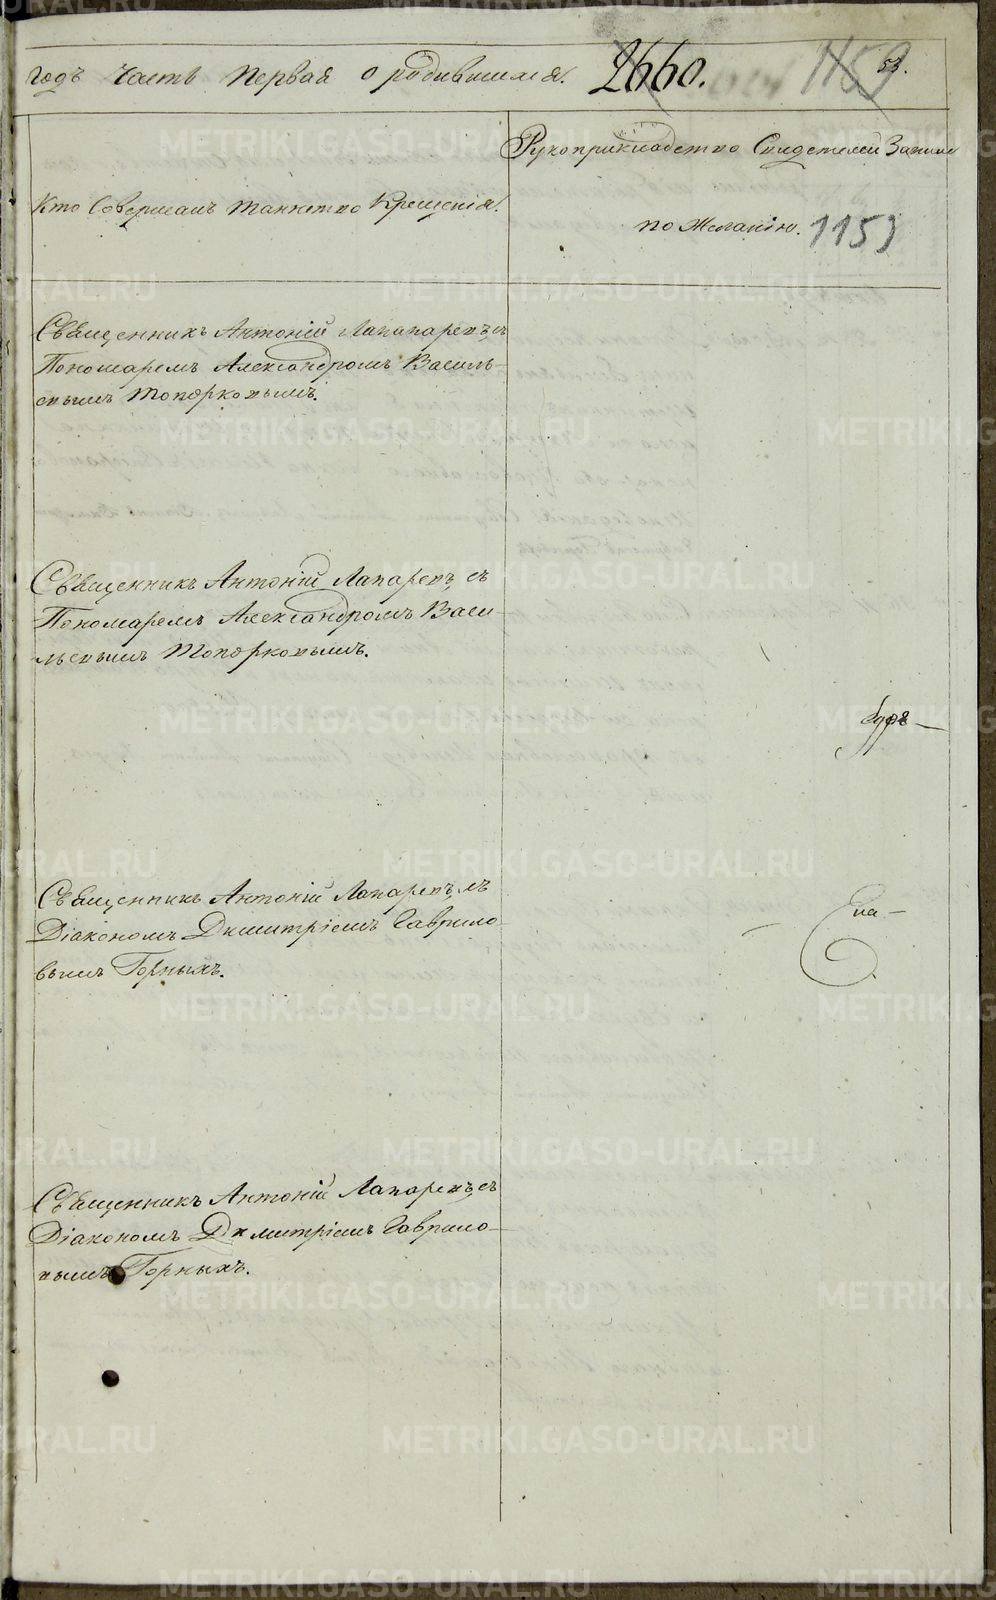 годъ Часть Первая о родившихся. 2660. 1159 53.
Кто Совершалъ Таинство Крещенія.
Рукоприкладство Свидетелей Записи
по Желанію. 1159
Священникъ Антоній Лапаревъ, съ
Пономаремъ Александромъ Василь-
евымъ Топорковымъ.
Священникъ Антоній Лапаревъ, съ
Пономаремъ Александромъ Васи-
льевымъ Топорковымъ.
Священникъ Антоній Лапаревъ, съ
Діакономъ Димитріемъ Гаврило-
вымъ Горныхъ.
Священникъ Антоній Лапаревъ, съ
Діакономъ Димитріемъ Гаврило-
вымъ Горныхъ.
METRIKI.GASO-URAL.RU